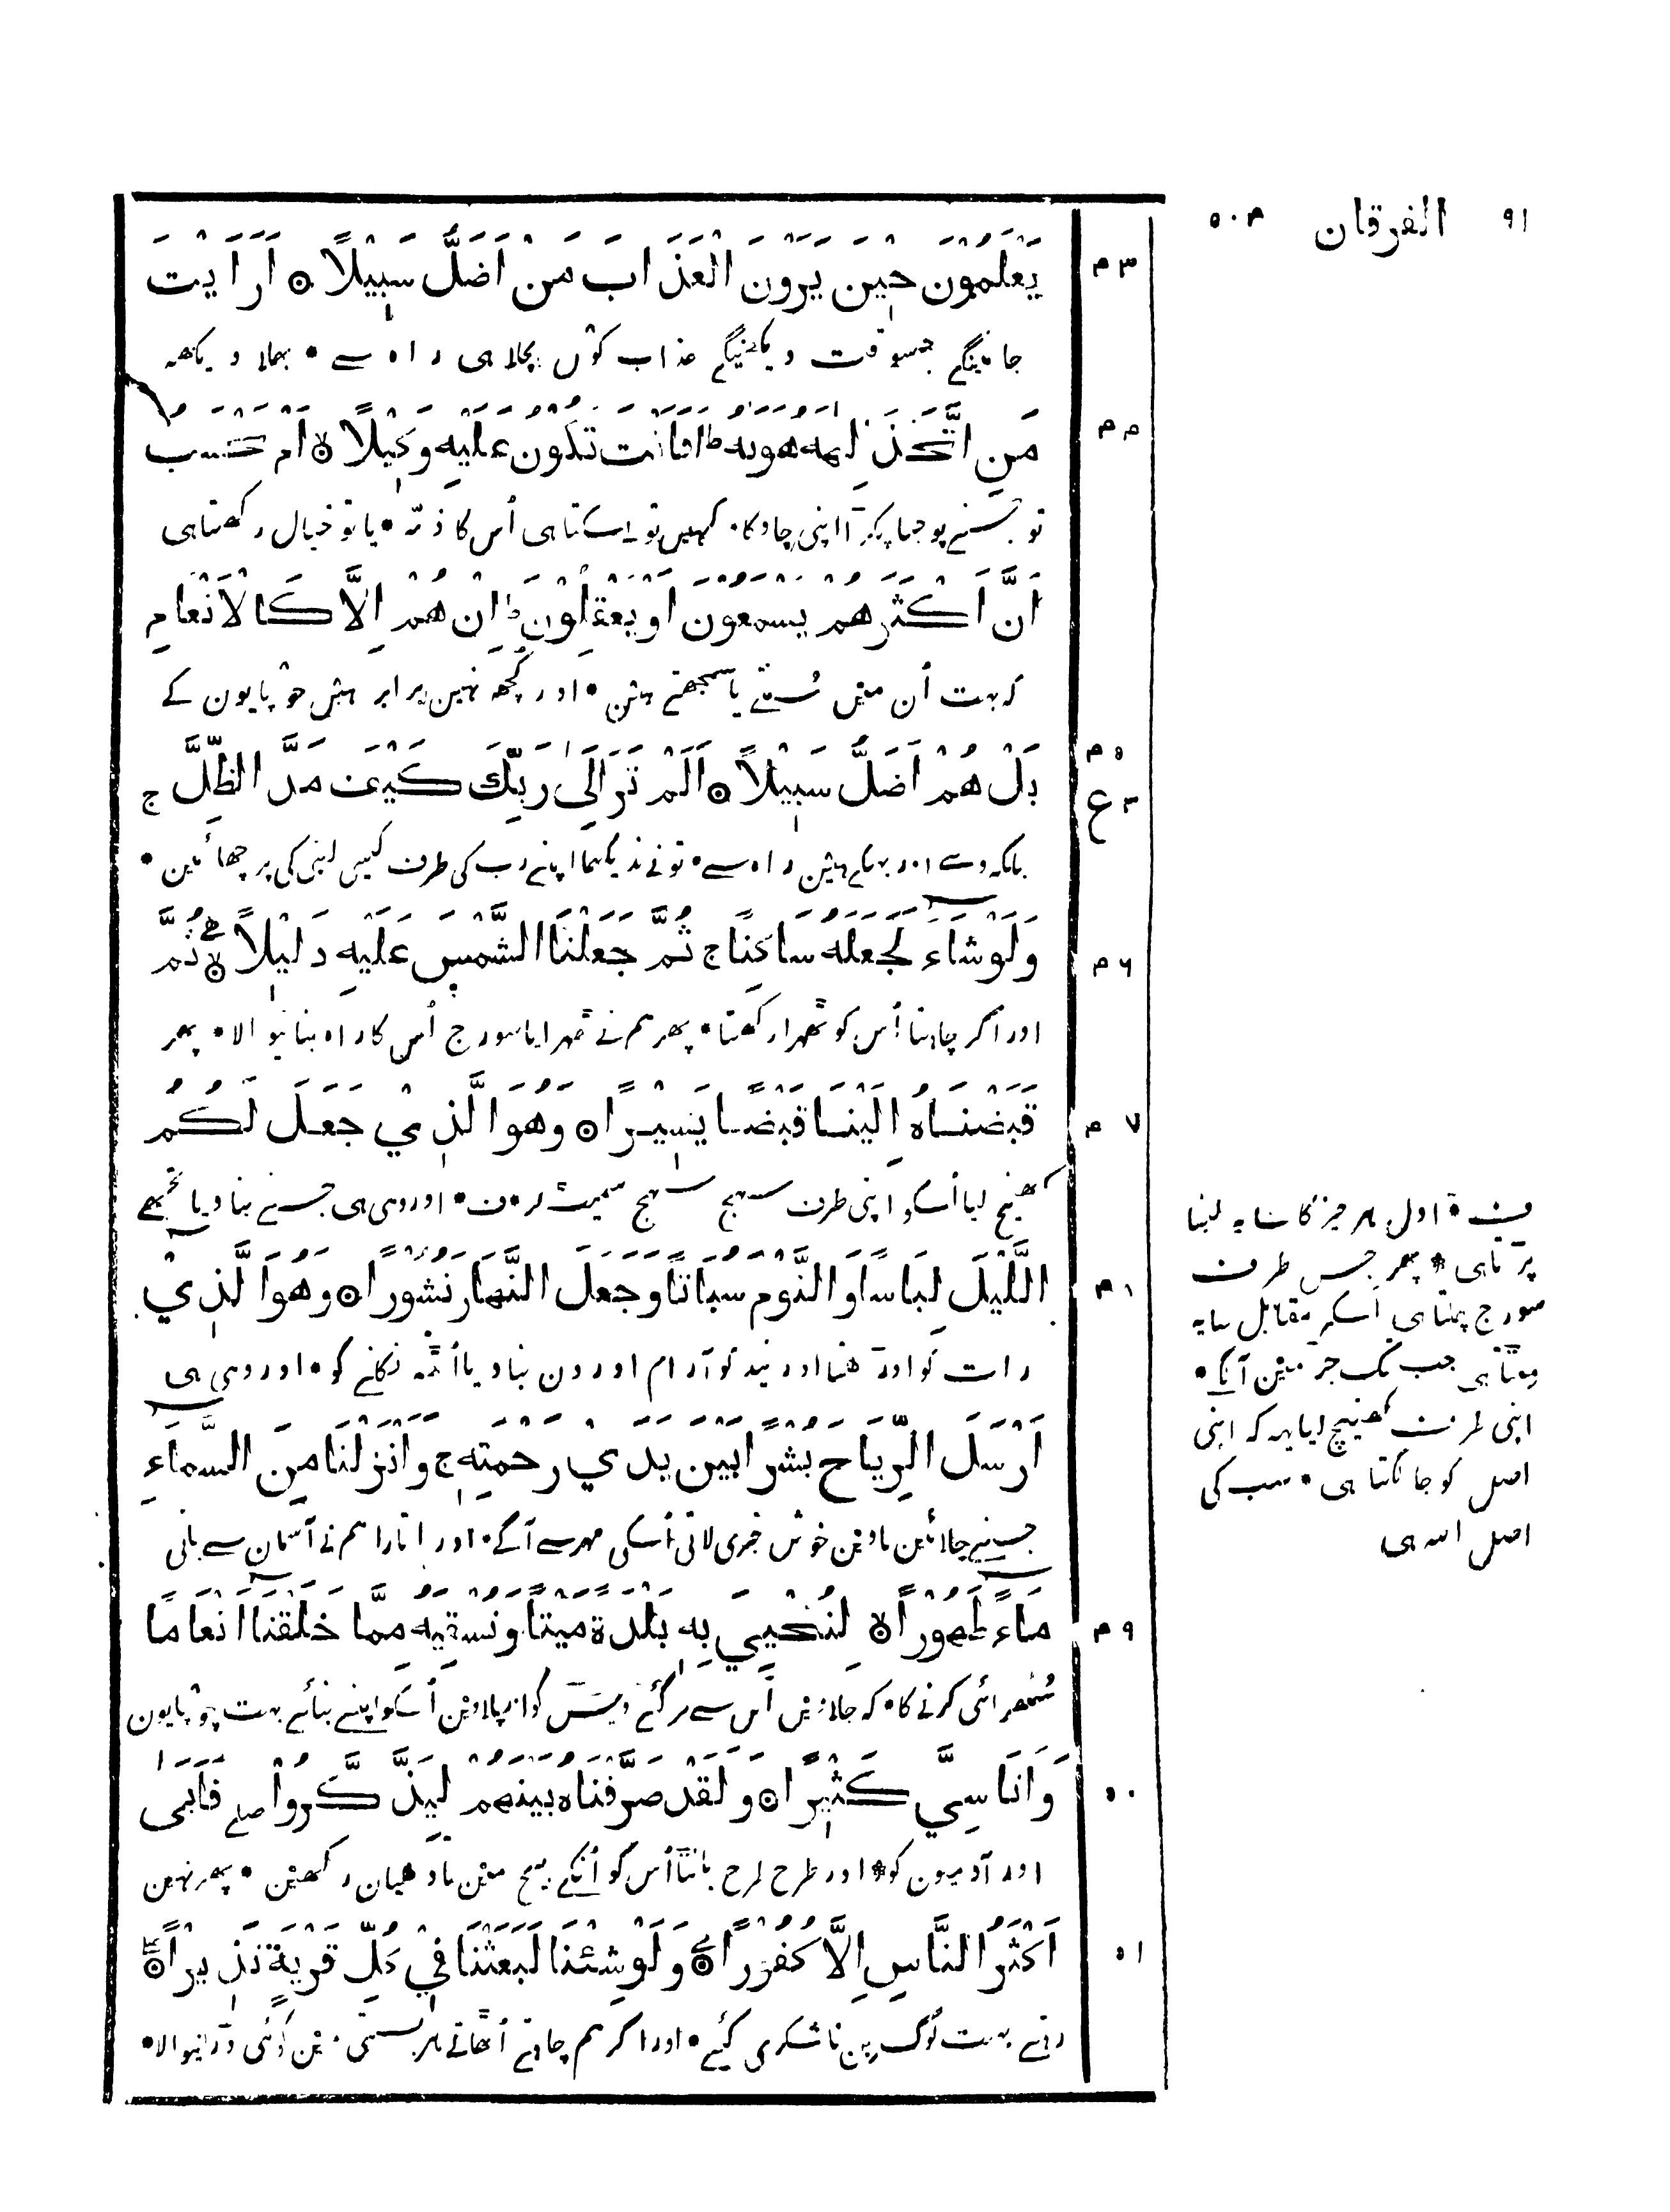 ٩١ الفرقان ٥٠٤
يَعْلَمُوْنَ حِيْنَ يَرَوْنَ الْعَذَابَ مَنْ اَضَلُّ سَبِيْلًا ۞ اَرَاَيْتَ ٤٣
جانينگے جسوقت ديکھينگے عذاب کون بچلا هی راه سے • بهلا ديکھه
مَنِ اتَّخَذَ اِلٰهَهٗ هَوٰىهُ ط اَفَاَنْتَ تَكُوْنُ عَلَيْهِ وَكِيْلًا ۙ اَمْ تَحْسَبُ ٤٤
تو جسنے پوجا پکڑا اپنی چاو کا • کہیں تو لے سکتا هی اُس کا ذمّه • يا تو خيال رکھتا هی
اَنَّ اَكْثَرَهُمْ يَسْمَعُوْنَ اَوْ يَعْقِلُوْنَ ط اِنْ هُمْ اِلَّا كَالْاَنْعَامِ
که بہت اُن مين سُنتے يا سمجھتے هين • اور کُچھه نہين برابر هين چوپايون کے
بَلْ هُمْ اَضَلُّ سَبِيْلًا ۞ اَلَمْ تَرَ اِلٰى رَبِّكَ كَيْفَ مَدَّ الظِّلَّ ج ٤٥ ع ٤
بلکه وے اور بہکے هين راه سے • تو نے نه ديکھا اپنے رب کی طرف کيسی لنبی کی پرچھائين •
وَلَوْ شَاءَ لَجَعَلَهٗ سَاكِنًا ج ثُمَّ جَعَلْنَا الشَّمْسَ عَلَيْهِ دَلِيْلًا ۙ ثُمَّ ٤٦
اور اگر چاهتا اُس کو ٹھہرا رکھتا • پھر هم نے ٹھہرايا سورج اُس کا راه بتانيوالا • پھر
قَبَضْنَاهُ اِلَيْنَا قَبْضًا يَسِيْرًا ۞ وَهُوَ الَّذِيْ جَعَلَ لَكُمُ ٤٧
کھينچ ليا اُسکو اپنی طرف سہج سہج سميٹ کر ف • اور وهی هی جسنے بنا ديا تمھے
اللَّيْلَ لِبَاسًا وَالنَّوْمَ سُبَاتًا وَجَعَلَ النَّهَارَ نُشُوْرًا ۞ وَهُوَ الَّذِيْ ٤٨
رات کو اوڑھنا اور نيند کو آرام اور دن بنا ديا اُٹھه نکلنے کو • اور وهی هی
اَرْسَلَ الرِّيَاحَ بُشْرًا بَيْنَ يَدَيْ رَحْمَتِهٖ ج وَاَنْزَلْنَا مِنَ السَّمَاءِ
جسنے چلائين باوين خوش خبری لاتی اُسکی مہر سے آگے • اور اتارا هم نے آسمان سے پانی
مَاءً طَهُوْرًا ۙ لِنُحْيِيَ بِهٖ بَلْدَةً مَيْتًا وَنُسْقِيَهٗ مِمَّا خَلَقْنَا اَنْعَامًا ٤٩
سُتھرائی کرنے کا • که جلاوين اُس سے مر گئے ديس کو اور پلاوين اُسکو اپنے بنائے بہت چوپايون
وَاَنَاسِيَّ كَثِيْرًا ۞ وَلَقَدْ صَرَّفْنَاهُ بَيْنَهُمْ لِيَذَّكَّرُوْا صلے فَاَبٰى ٥٠
اور آدميون کو • اور طرح طرح بانٹا اُس کو اُنکے بيچ مين تا دهيان رکھين • پھر نہين
اَكْثَرُ النَّاسِ اِلَّا كُفُوْرًا ۞ وَلَوْ شِئْنَا لَبَعَثْنَا فِيْ كُلِّ قَرْيَةٍ نَذِيْرًا ۞ ٥١
رهتے بہت لوگ بن ناشکری کيے • اور اگر هم چاهتے اُٹھاتے هر بستی مين کوئی ڈرانيوالا •
ف • اول هر چيز کا سايه لنبا
پڑتا هی • پھر جس طرف
سورج چلتا هی اُسکے مقابل سايه
هٹتا هی جب تک جڑ مين آ لگے •
اپنی طرف کھينچ ليا يہه که اپنی
اصل کو جا لگتا هی • سب کی
اصل الله هی